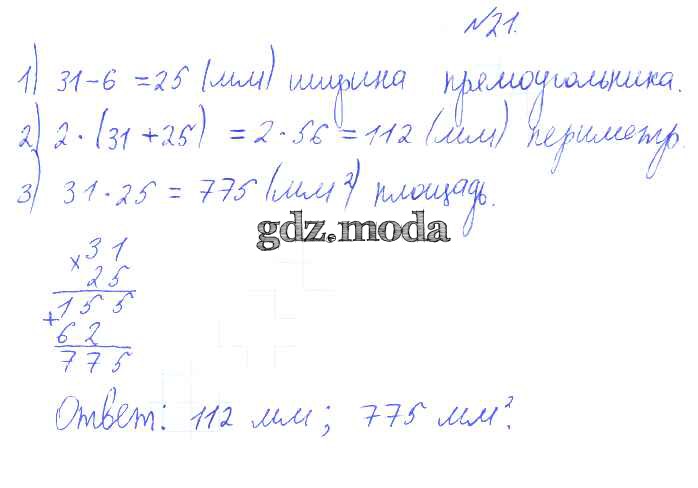 №21.
1) 31-6 =25 (мм) ширина прямоугольника.
2) 2·(31+25) = 2·56 = 112 (мм) периметр.
3) 31·25 = 775 (мм²) площадь.
gdz.moda
× 31
25
+ 155
62
775
Ответ: 112 мм; 775 мм².